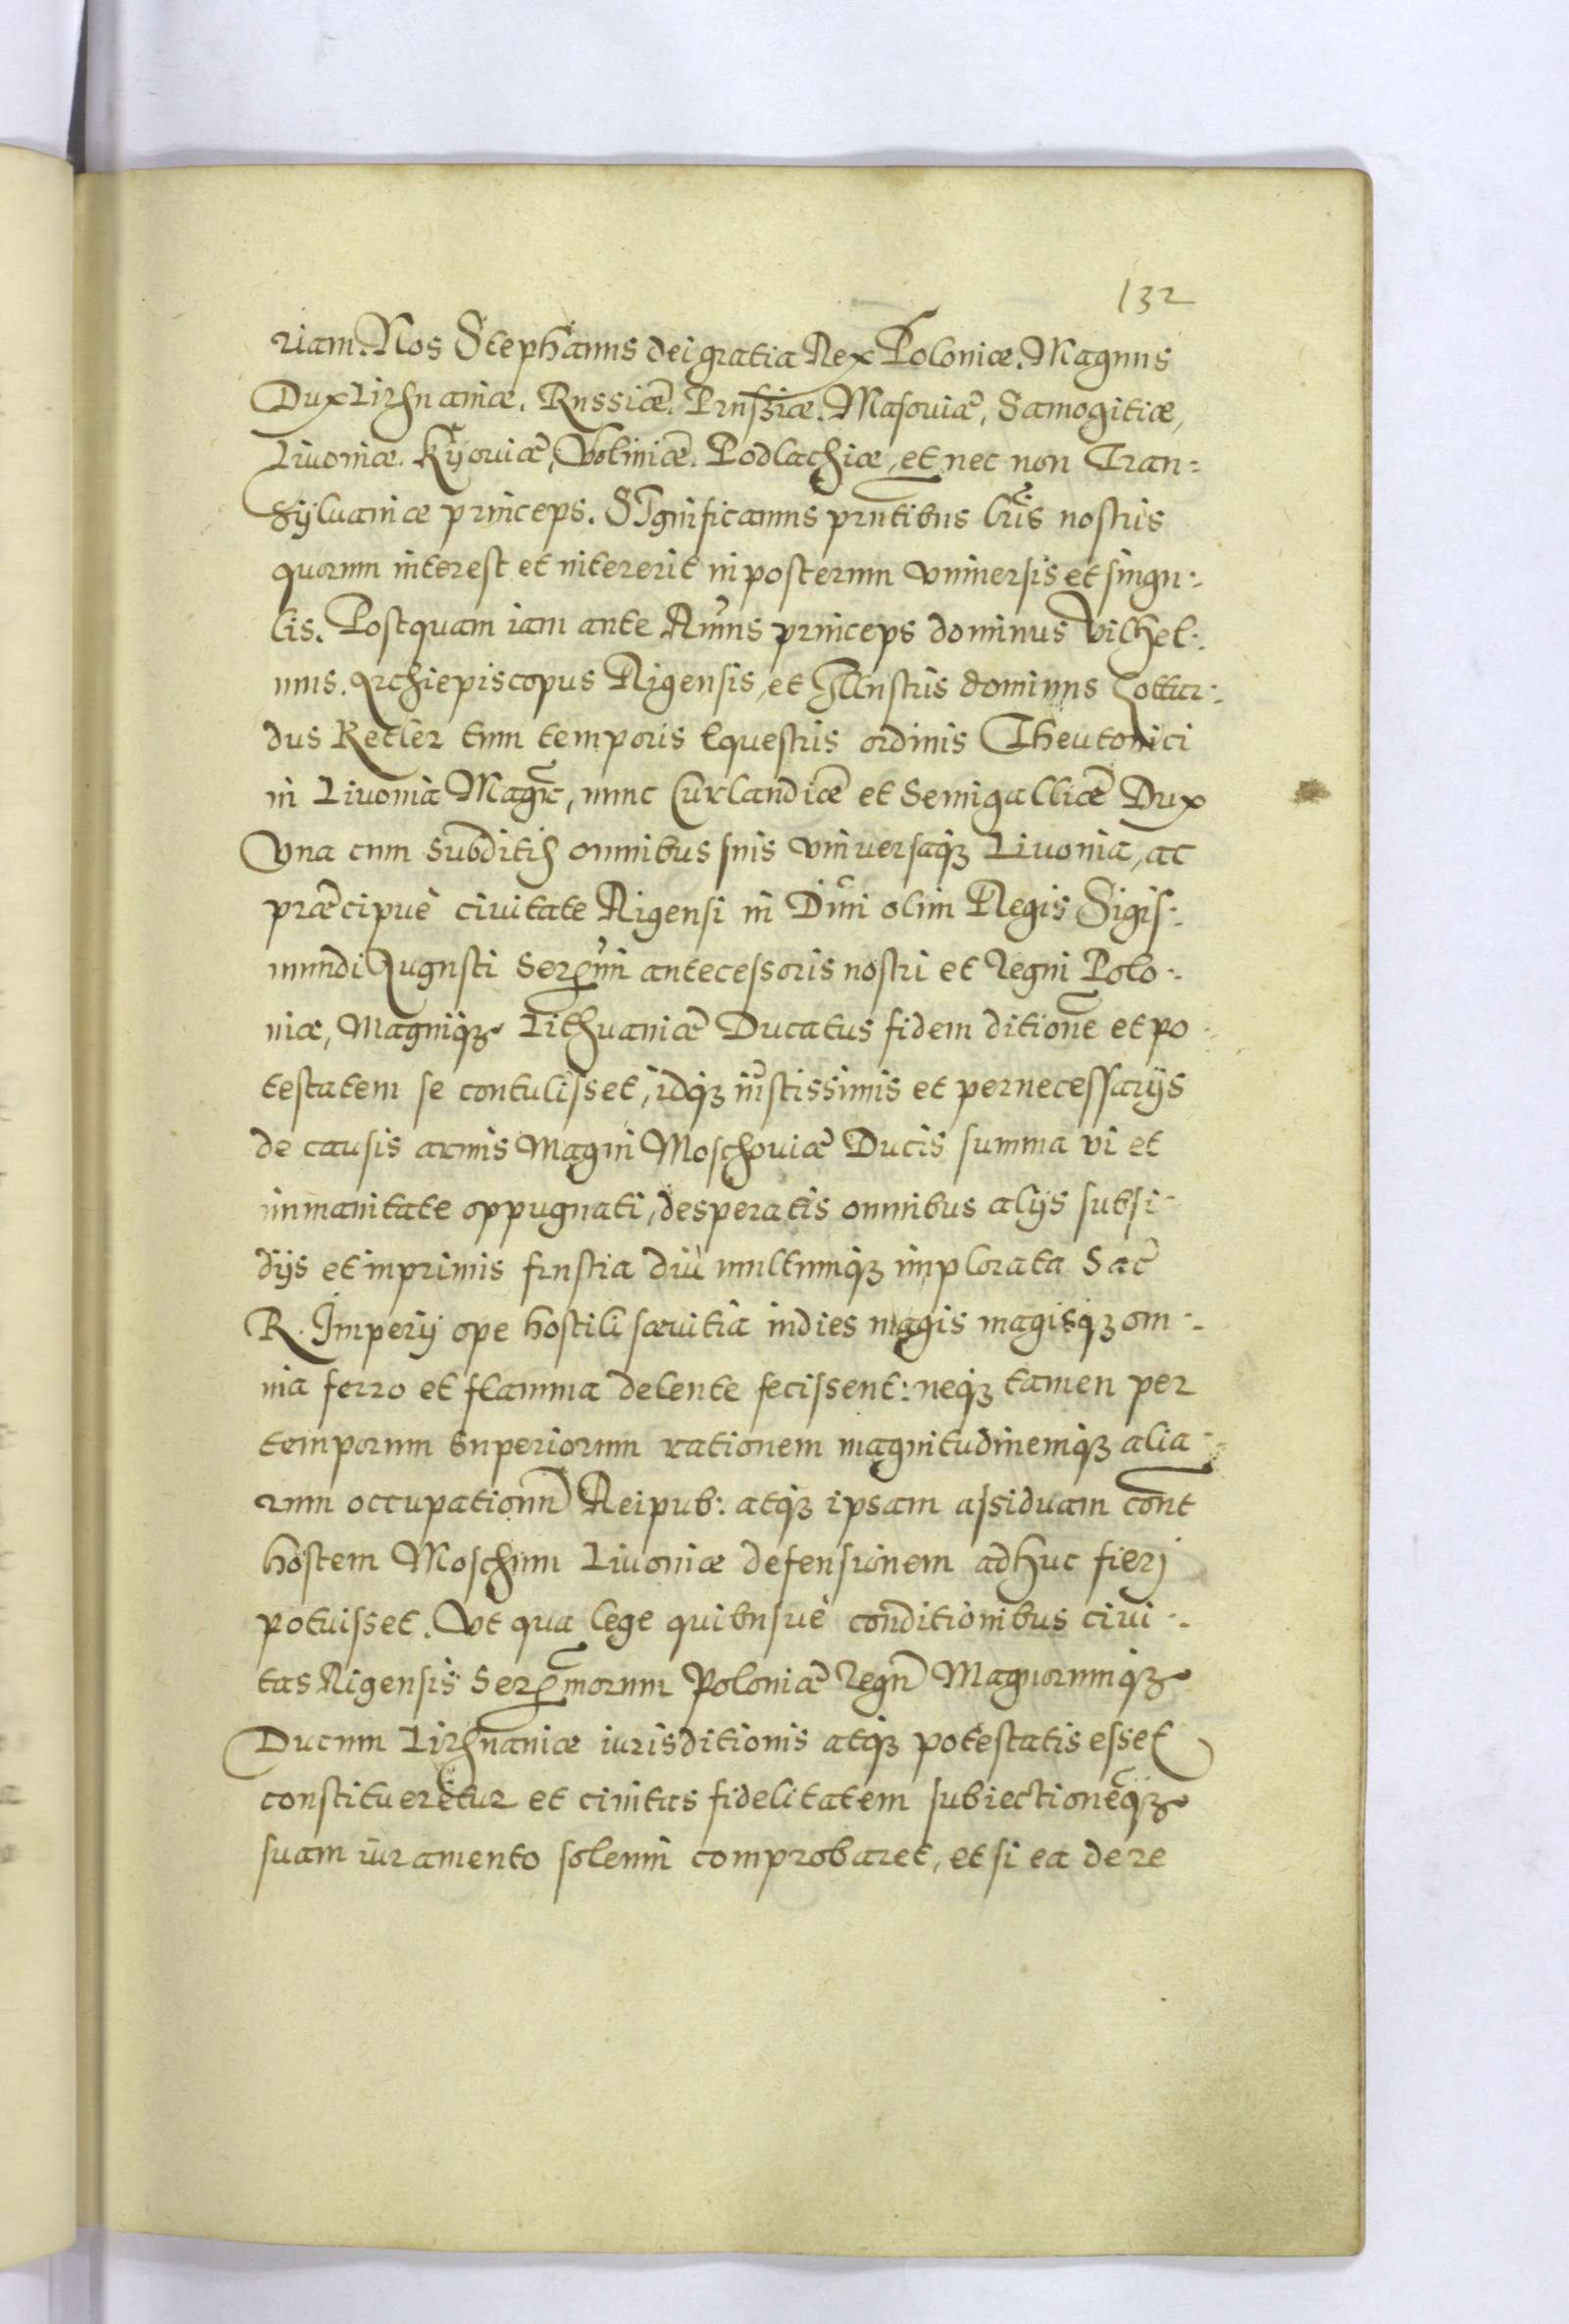 132
riam. Nos Stephanus dei gratia Rex Poloniæ. Magnus
Dux Lithuaniæ. Russiæ. Prussiæ. Masouiæ, Samogitiæ,
Liuoniæ. Kÿouiæ, Voliniæ. Podlachiæ, et nec non Tran:
sÿluaniæ princeps. SIgnificamus prntibus lrĩs nostris
quorum interest et intererit in posterum vniuersis et singu:
lis. Postquam iam ante Rmus princeps dominus Vilhel:
mus. Archiepiscopus Rigensis, et Illustris dominus Gottar:
dus Ketler tum temporis Equestris ordinis Theutonici
in Liuonia Magr, nunc Curlandiæ et Semigalliæ Dux
Vna cum subditis omnibus suis vniuersaqꝫ Liuonia, ac
præcipuè ciuitate Rigensi in Diui olim Regis Sigis:
mundi Augusti Sermi antecessoris nostri et Regni Polo:
niæ, Magniqꝫ Lithuaniæ Ducatus fidem ditionẽ et po:
testatem se contulisset, idqꝫ iustissimis et pernecessarijs
de causis armis Magni Moschouiæ Ducis summa vi et
inmanitate oppugnati, desperatis omnibus alijs subsi:
dijs et inprimis frustia diù multumqꝫ implorata Sac
R. Imperij ope hostili sæuitia indies magis magisqꝫ om:
nia ferro et flamma delente fecissent: neqꝫ tamen per
temporum superiorum rationem magnitudinemqꝫ alia:
rum occupationũ Reipub: atqꝫ ipsam assiduam cont
hostem Moschum Liuoniæ defensionem adhuc fierj
potuisset. Vt qua lege quibusuè conditionibus ciui:
tas Rigensis Sermorum Poloniæ Regũ Magnorumqꝫ
Ducum Lithuaniæ iurisditionis atqꝫ potestatis esset
constitueretur et ciuitas fidelitatem subiectionẽqꝫ
suam iuramento solenni comprobaret, et si ea de re